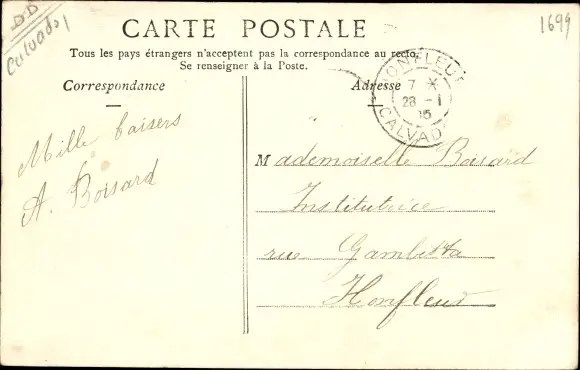 DD
Calvados
1699
CARTE POSTALE
Tous les pays étrangers n'acceptent pas la correspondance au recto.
Se renseigner à la Poste.
Correspondance
Adresse
HONFLEUR
7 *
28 - 1
15
CALVADOS
Mille baisers
A. Boisard
Mademoiselle Boisard
Institutrice
rue Gambetta
Honfleur